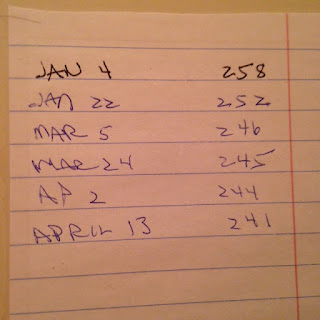 JAN 4 258
JAN 22 252
MAR 5 246
MAR 24 245
AP 2 244
APRIL 13 241